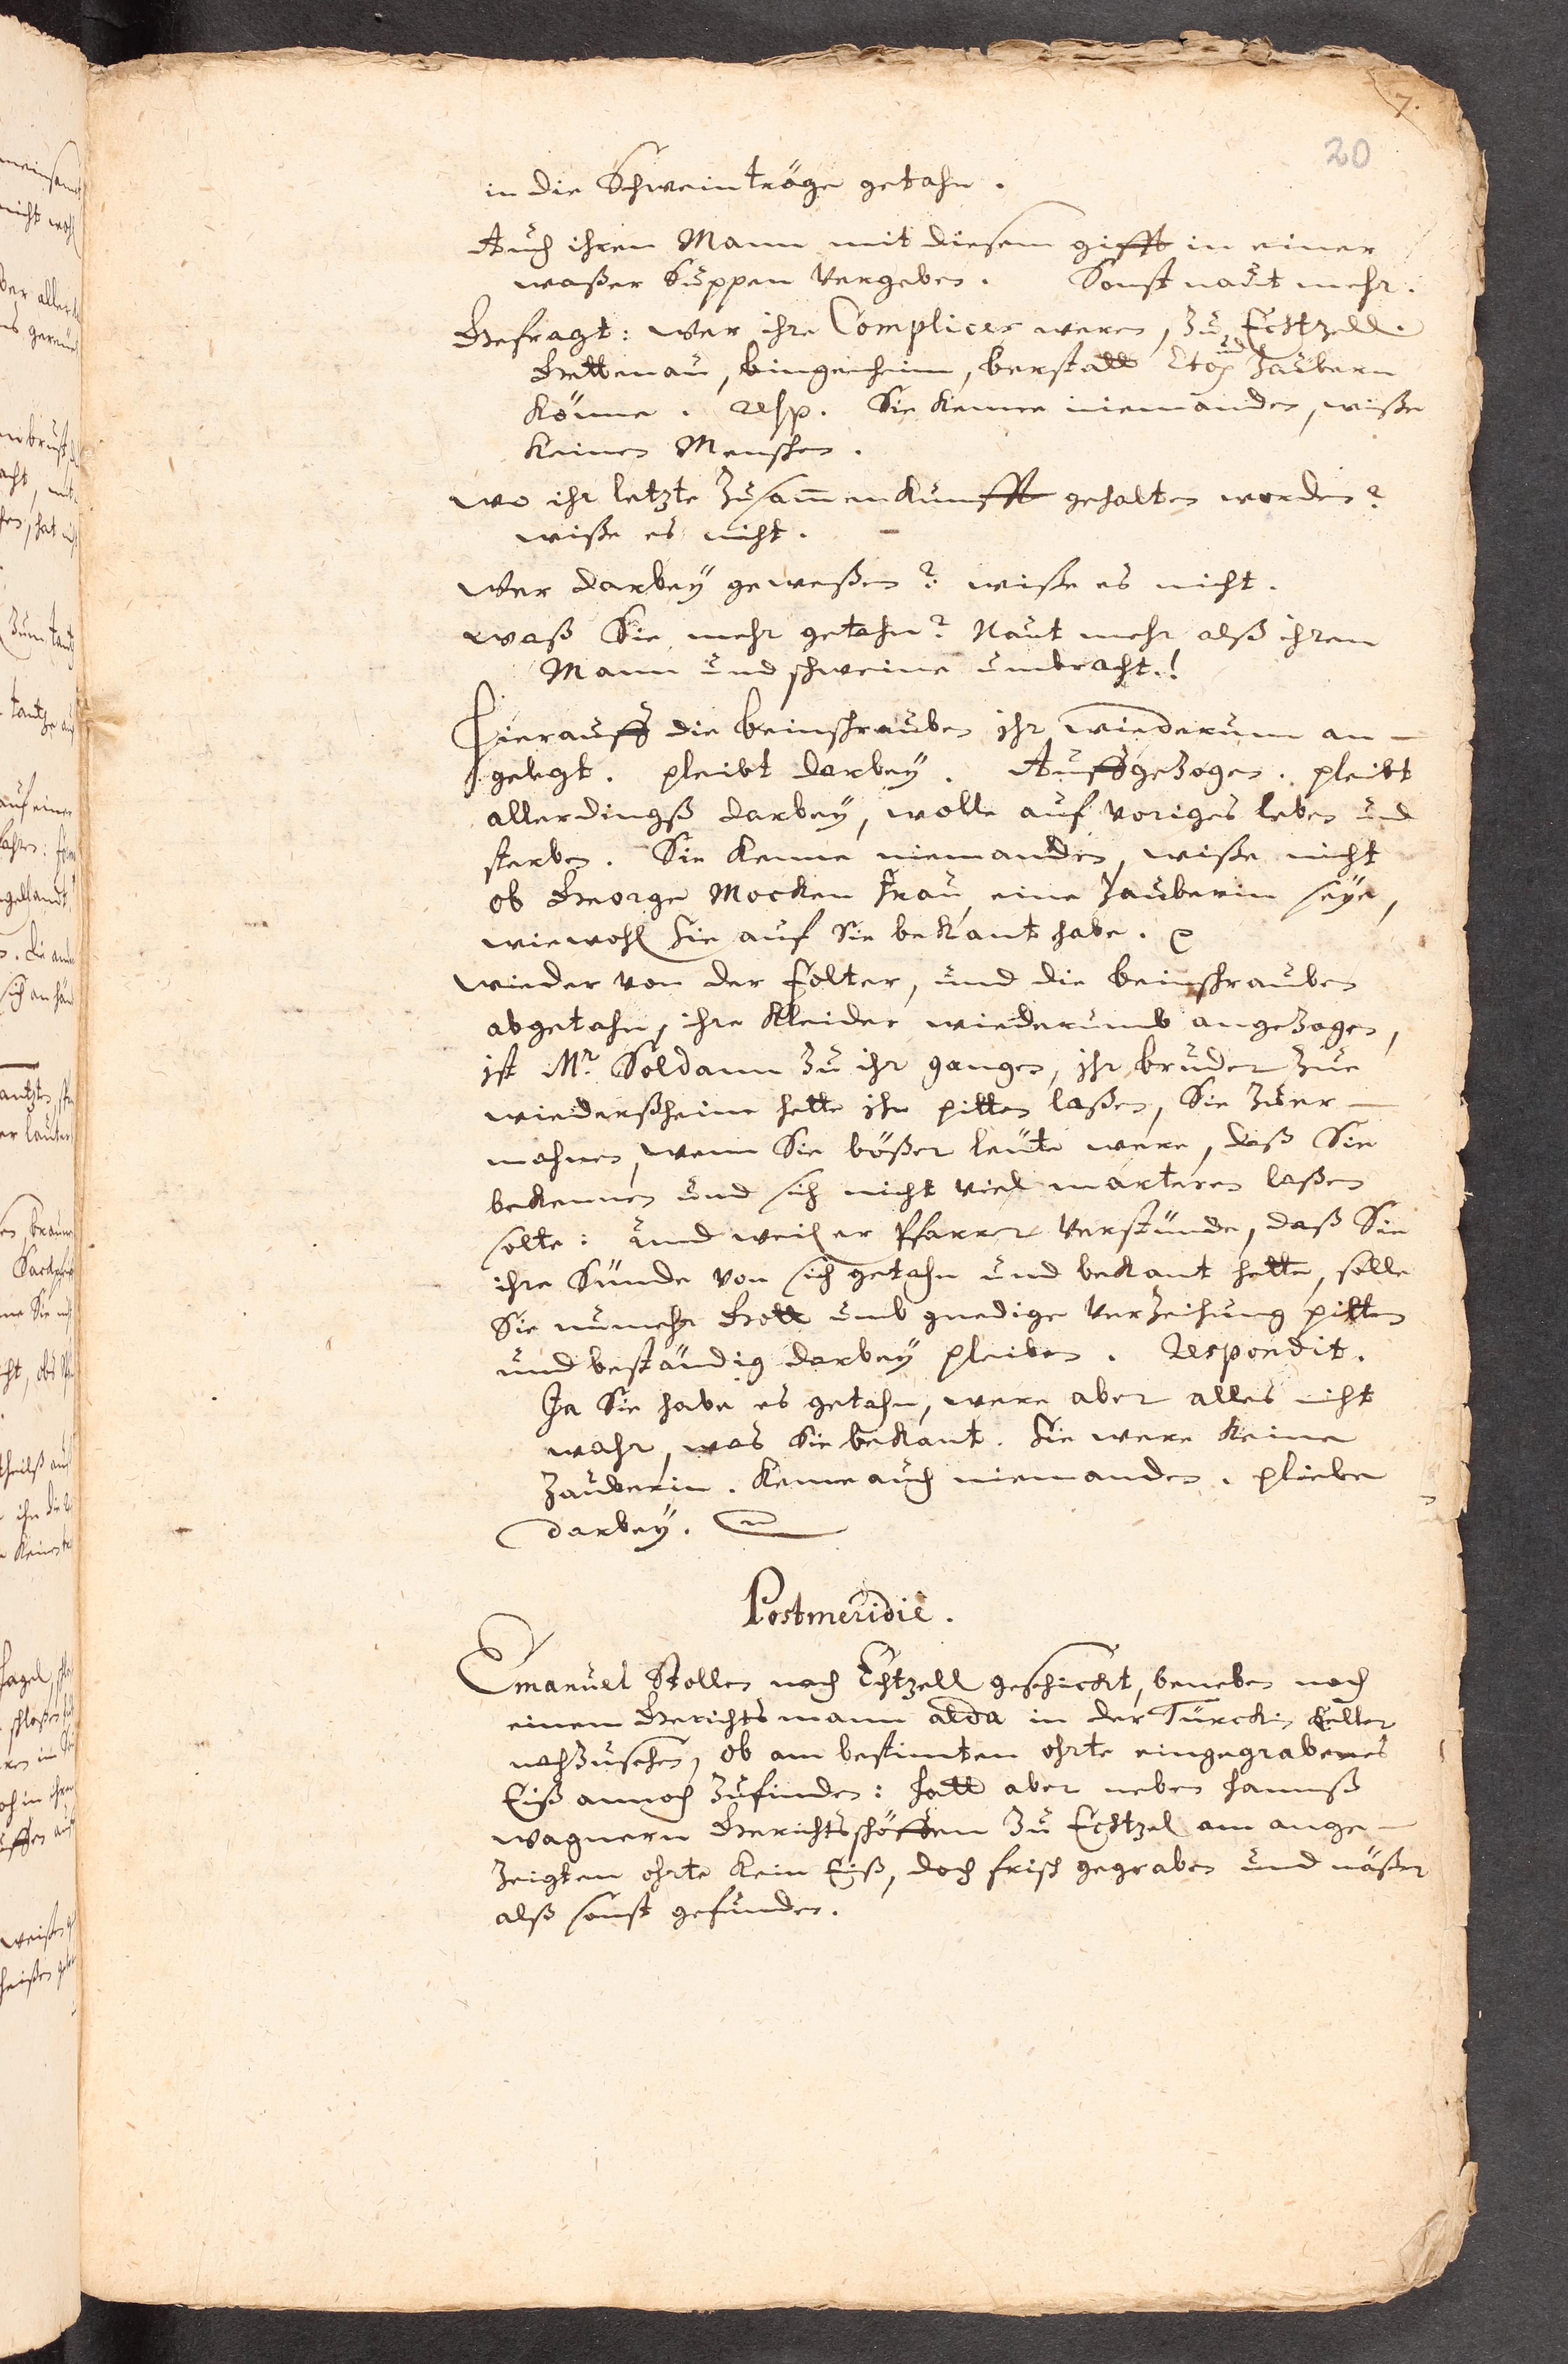 7.
20
in die Schweintröge getahn.
Auch ihren Mann mit diesem gifft in einer
waßer Suppen vergeben. Sonst naut mehr.
Gefragt: Wer ihre Complices weren, zu Echtzell.
Gettenau, bingenheim, berstatt und zaubern
könne. resp. Sie kenne niemanden, wiße
keinen Menschen.
wo ihr letzte Zusam̄enkunfft gehalten worden?
wiße es nicht.
Wer darbey geweßen? wiße es nicht.
waß Sie mehr getahn? Naut mehr alß ihren
Mann und schweine umbracht.!
Hierauff die beinschrauben ihr wiederumm an-
gelegt. pleibt darbey. Auffgezogen. pleibt
allerdingß darbey, wolle auf voriges leben und
sterben. Sie kenne niemanden, wiße nicht
ob George Mocken Frau eine Zauberin seye,
wiewohl Sie auf Sie bekant habe.
wieder von der Folter, und die beinschrauben
abgetahn, ihre Kleider wiederumb angezogen,
ist Mr. Soldann zu ihr gangen, ihr bruder zue
wiederßheim hette ihn pitten laßen, Sie zuer-
mahnen, wenn Sie bößer leute were, daß Sie
bekennen und sich nicht viel marteren laßen
solte: und weil er Pfarrer verstünde, daß Sie
ihre Sünde von sich getahn und bekant hette, solle
Sie numehr Gott umb gnedige verzeihung pitten
und beständig darbey pleiben. Respondit.
Ja Sie habe es getahn, were aber alles nicht
wahr, was Sie bekant. Sie were keine
Zauberin. Kenne auch niemanden. pliebe
darbey.
Postmeridie.
Emanuel Stollen nach Echtzell geschickt, beneben noch
einem Gerichtsmann alda in der Türckin Keller
nachzusehen, ob am bestimten ohrte eingegrabenes
Eiß annoch zufinden: hatt aber neben Hannß
Wagnern Gerichtsschöffen zu Echtzel am ange-
zeigten ohrte kein Eiß, doch frisch gegraben und näßer
alß sonst gefunden.